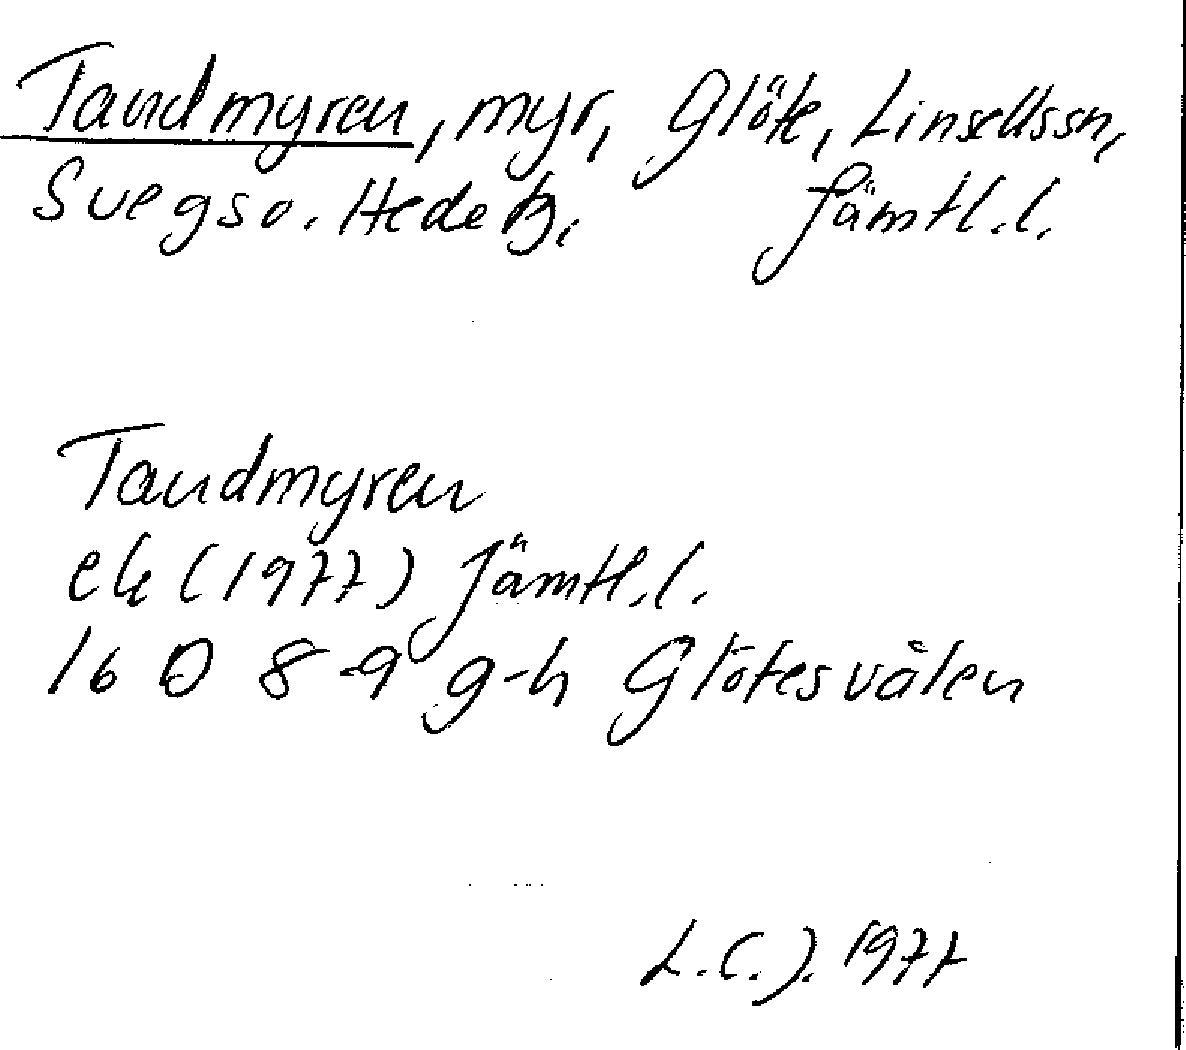 Tandmyren, myr, Glöte, Linsellssn,
Svegs o. Hede tg, Jämtl.l.
Tandmyren
ek (1977) Jämtl.l.
16 D 8-9 g-h Glötesvålen
L.C.J. 1977